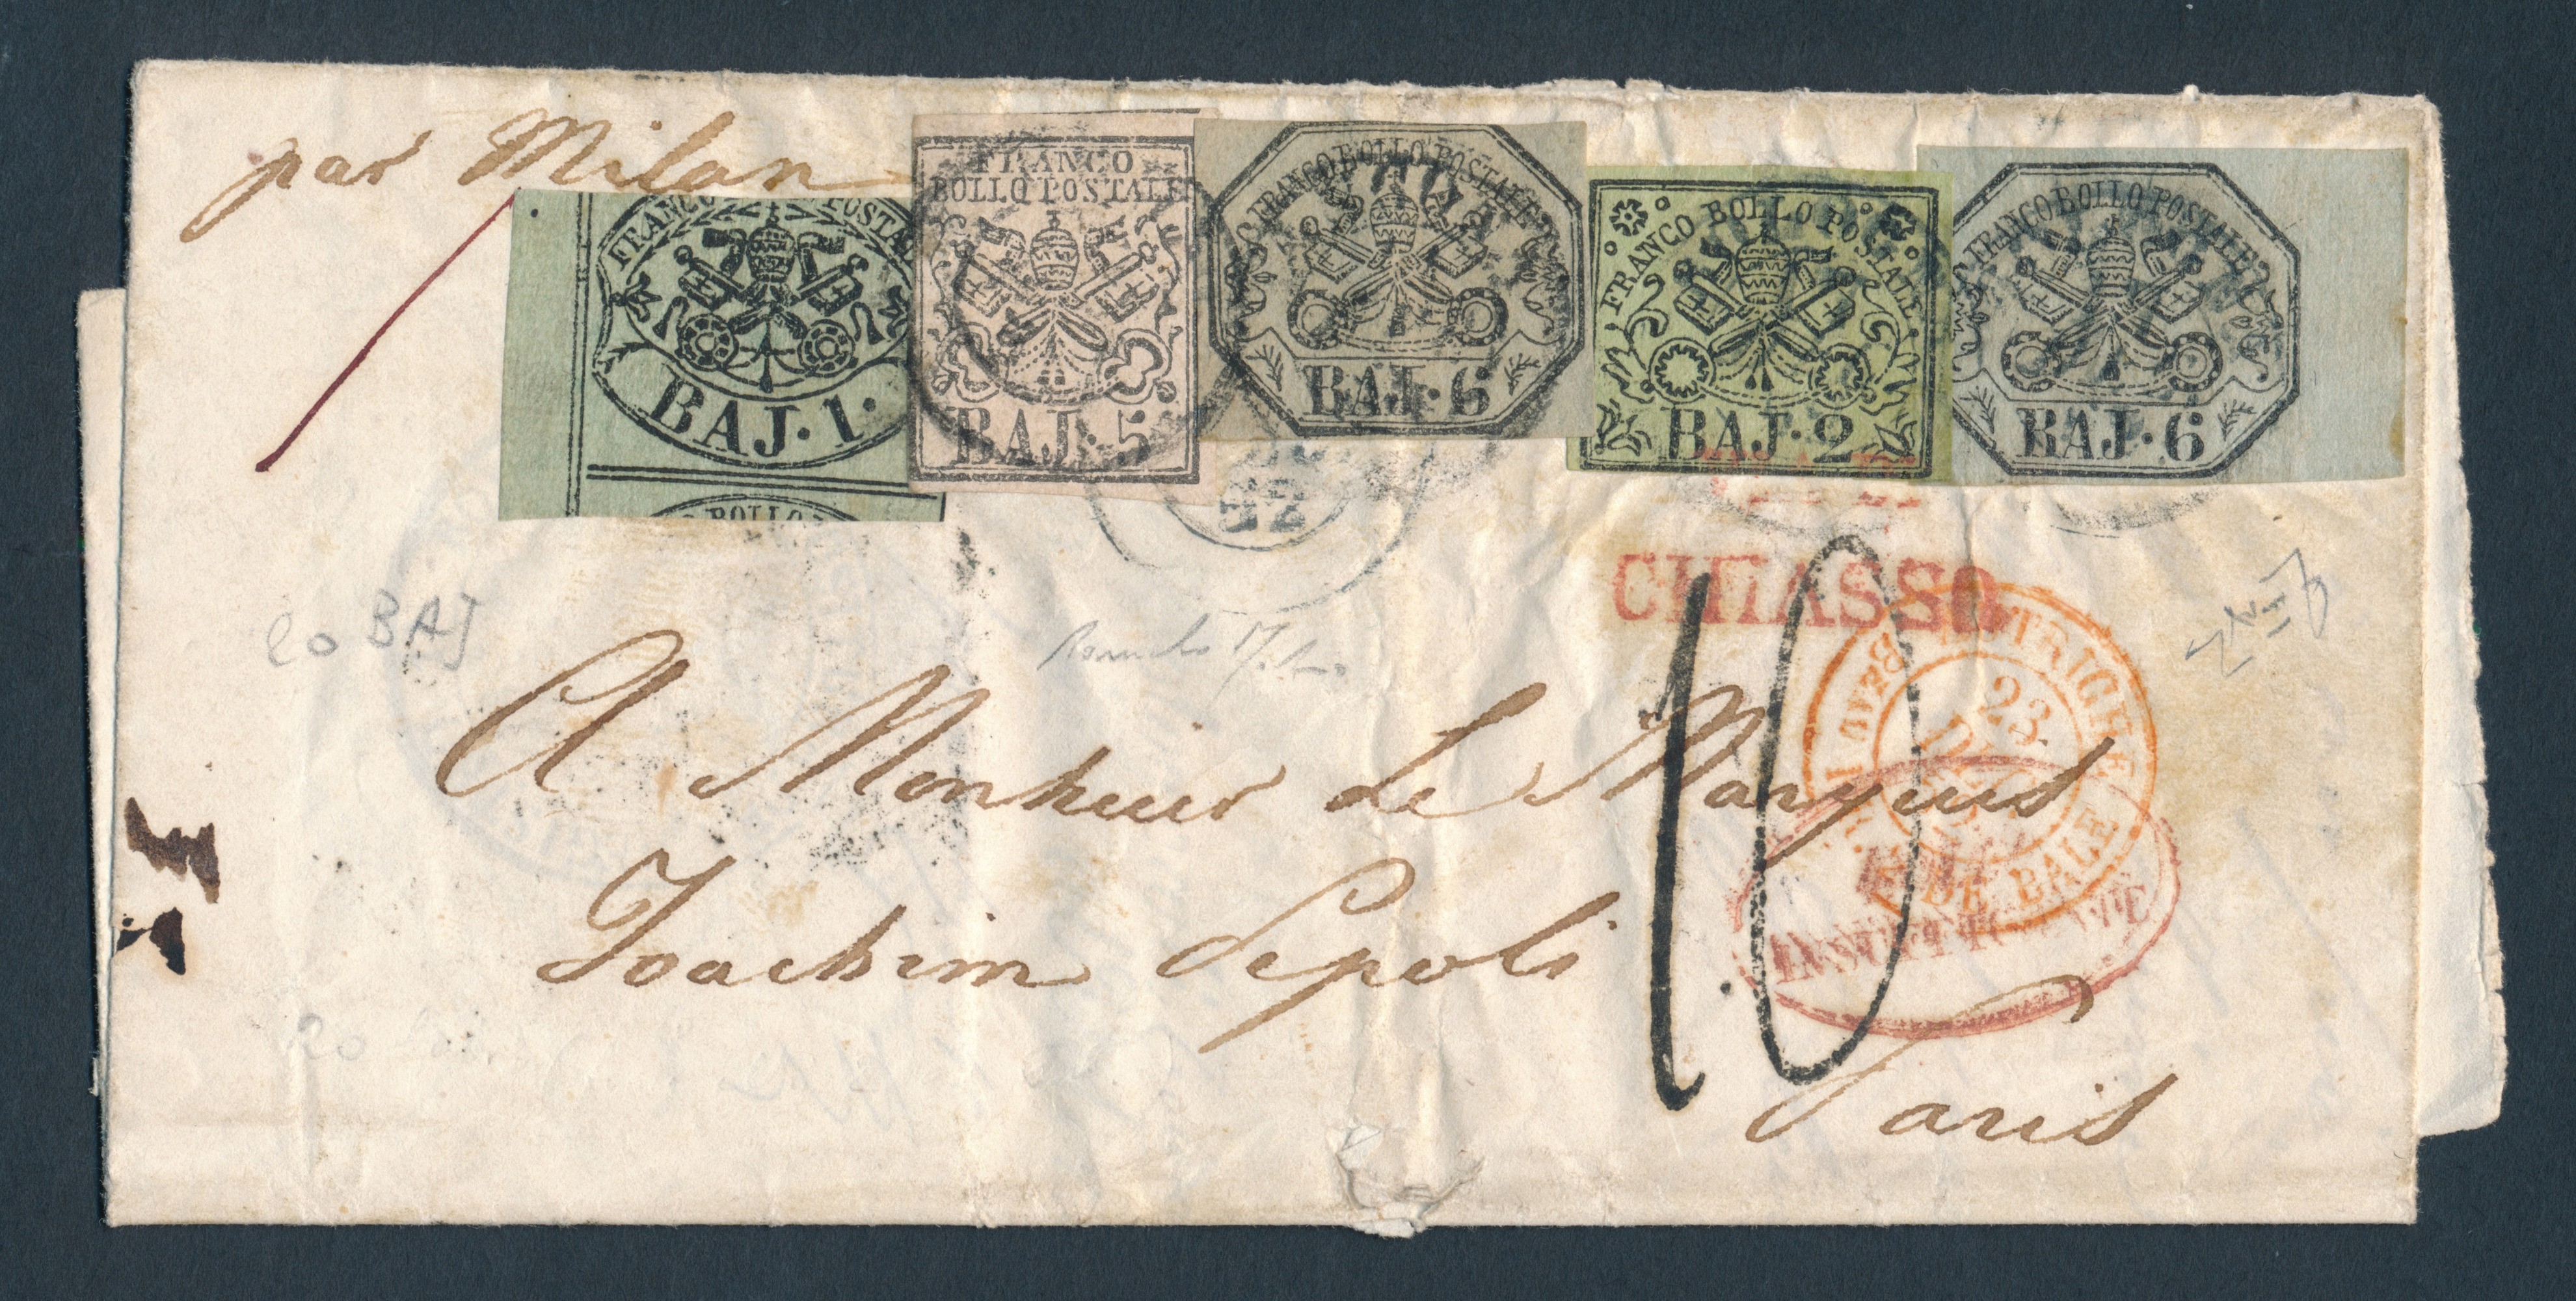 par Milan
FRANCO POSTA
BAJ·1·
BOLLO
FRANCO
BOLLO POSTALE
BAJ·5
FRANCO BOLLO POSTALE
BAJ·6
FRANCO BOLLO POSTALE
BAJ·2
FRANCO BOLLO POSTALE
BAJ·6
52
CHIASSO
20 BAJ
10
AUTRICHE
23
DE BALE
INSUFFISANTE
A Monsieur Le Marquis
Joachim Pepoli
Paris
20